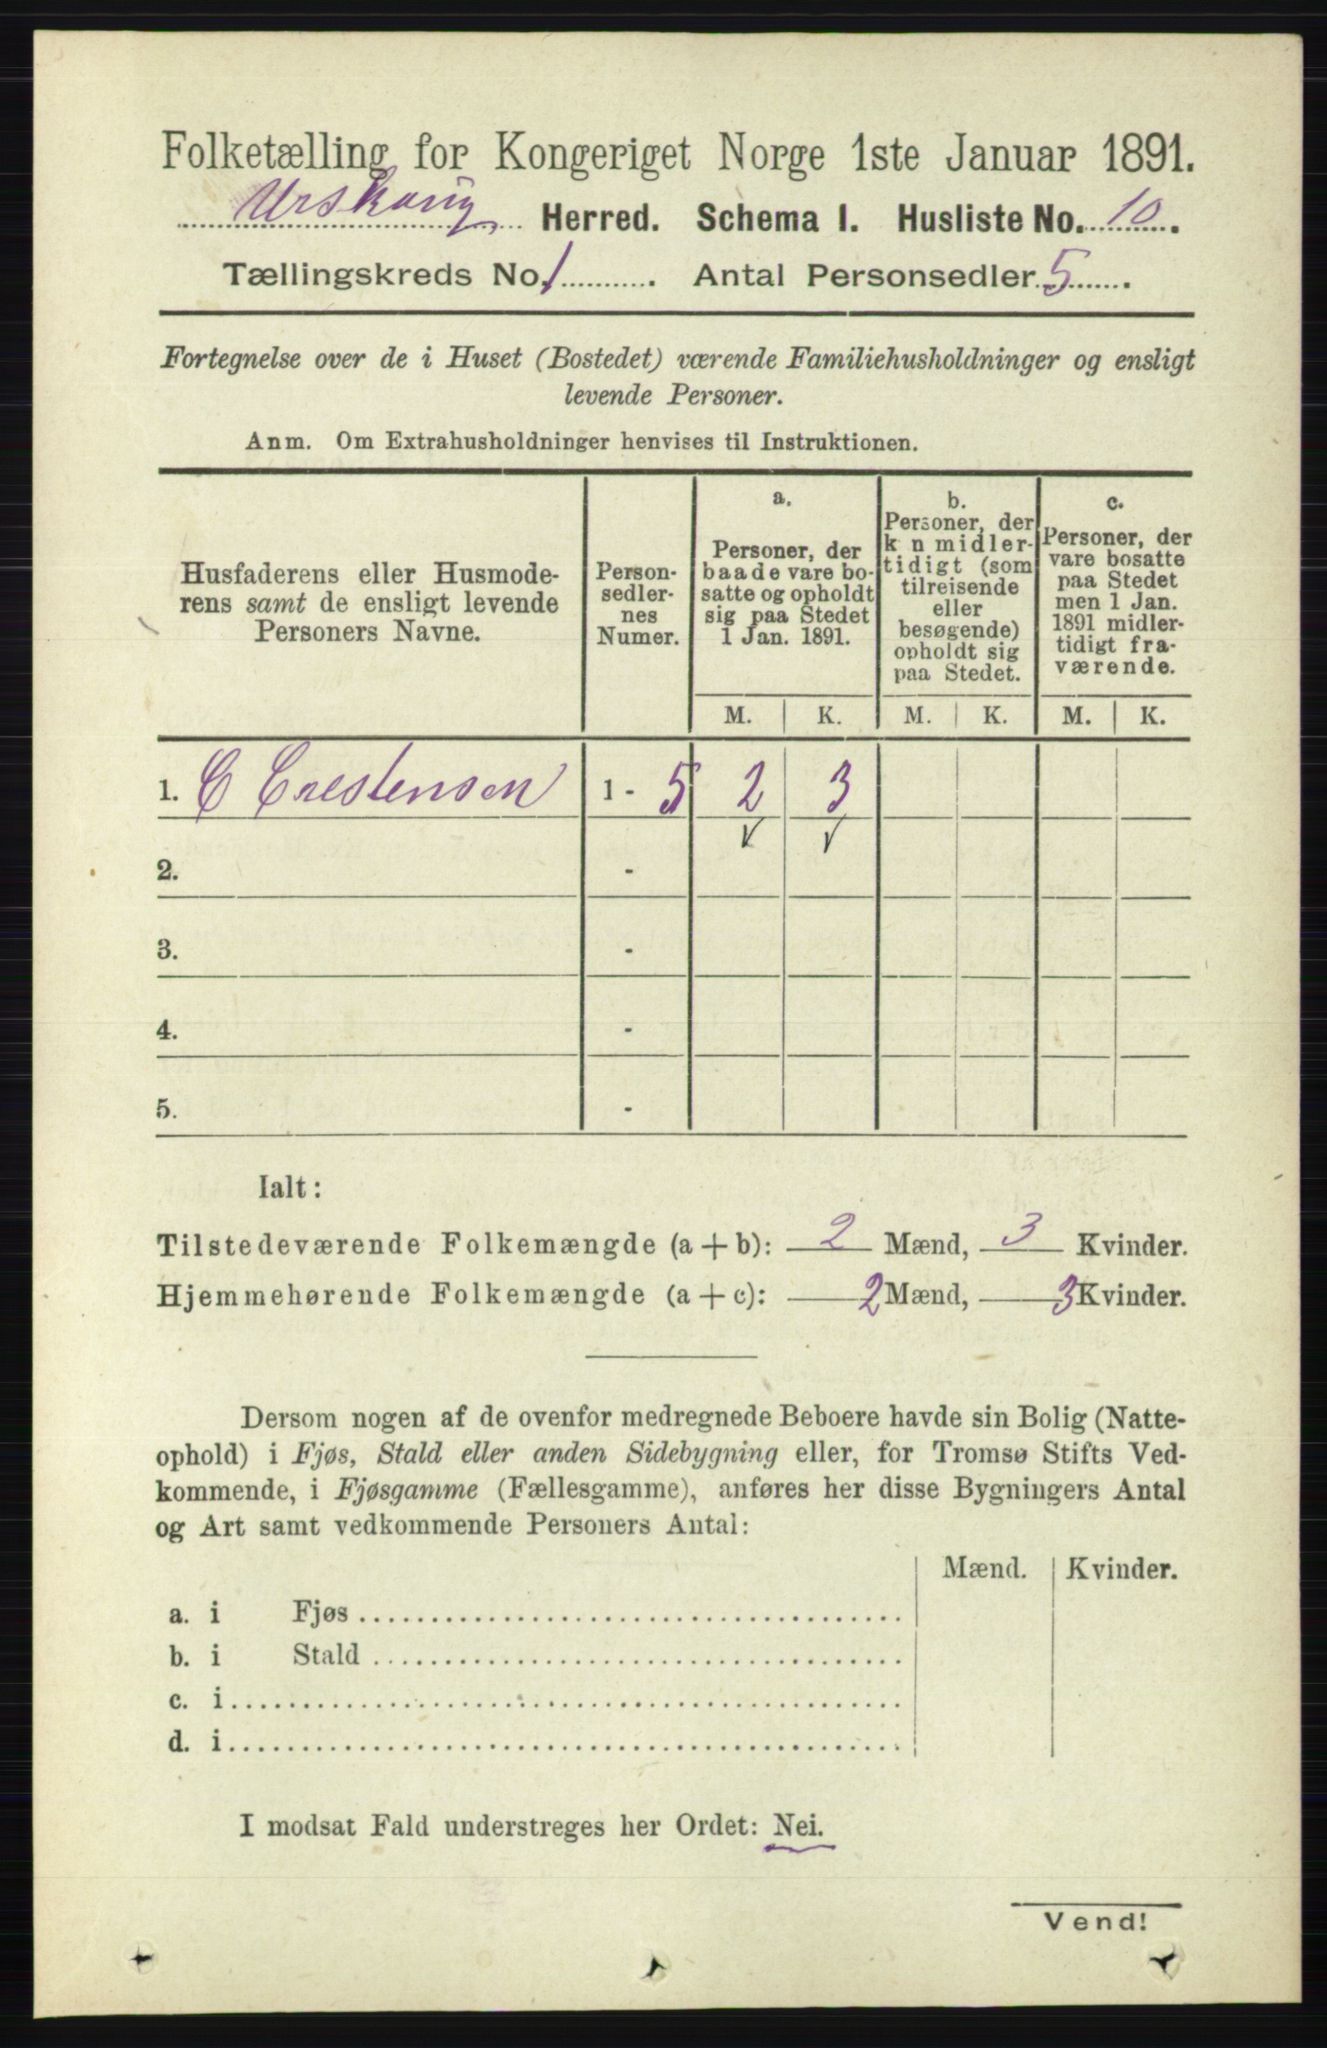 Folketælling for Kongeriget Norge 1ste Januar 1891.
Urskoug Herred. Schema I. Husliste No. 10.
Tællingskreds No. 1. Antal Personsedler 5.
Fortegnelse over de i Huset (Bostedet) værende Familiehusholdninger og ensligt
levende Personer.
Anm. Om Extrahusholdninger henvises til Instruktionen.
Husfaderens eller Husmode-
rens samt de ensligt levende
Personers Navne.
Person-
sedler-
nes
Numer.
a.
Personer, der
baade vare bo-
satte og opholdt
sig paa Stedet
1 Jan. 1891.
b.
Personer, der
k n midler-
tidigt (som
tilreisende
eller
besøgende)
opholdt sig
paa Stedet.
c.
Personer, der
vare bosatte
paa Stedet
men 1 Jan.
1891 midler-
tidigt fra-
værende.
M. K. M. K. M. K.
1. C Crestensen 1 - 5 2 3
2. -
3. -
4. -
5. -
Ialt:
Tilstedeværende Folkemængde (a + b): 2 Mænd, 3 Kvinder.
Hjemmehørende Folkemængde (a + c): 2 Mænd, 3 Kvinder.
Dersom nogen af de ovenfor medregnede Beboere havde sin Bolig (Natte-
ophold) i Fjøs, Stald eller anden Sidebygning eller, for Tromsø Stifts Ved-
kommende, i Fjøsgamme (Fællesgamme), anføres her disse Bygningers Antal
og Art samt vedkommende Personers Antal:
Mænd. Kvinder.
a. i Fjøs
b. i Stald
c. i
d. i
I modsat Fald understreges her Ordet: Nei.
Vend!